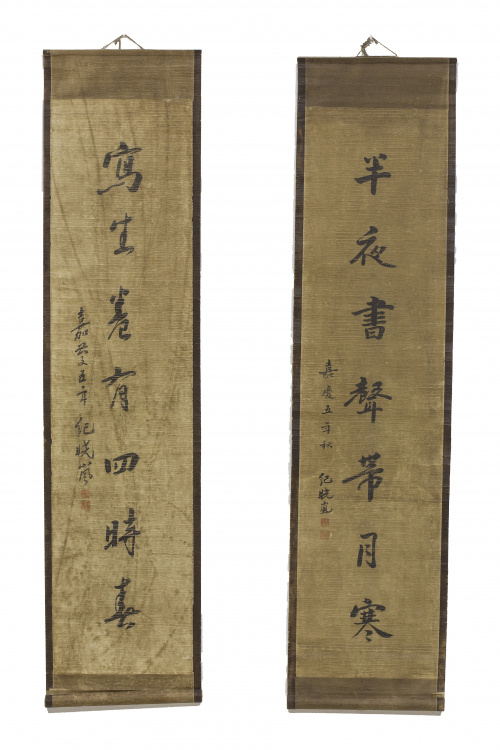 半夜書聲帶月寒
嘉慶五年秋 紀曉嵐
寫生卷有四時春
嘉慶五年 紀曉嵐